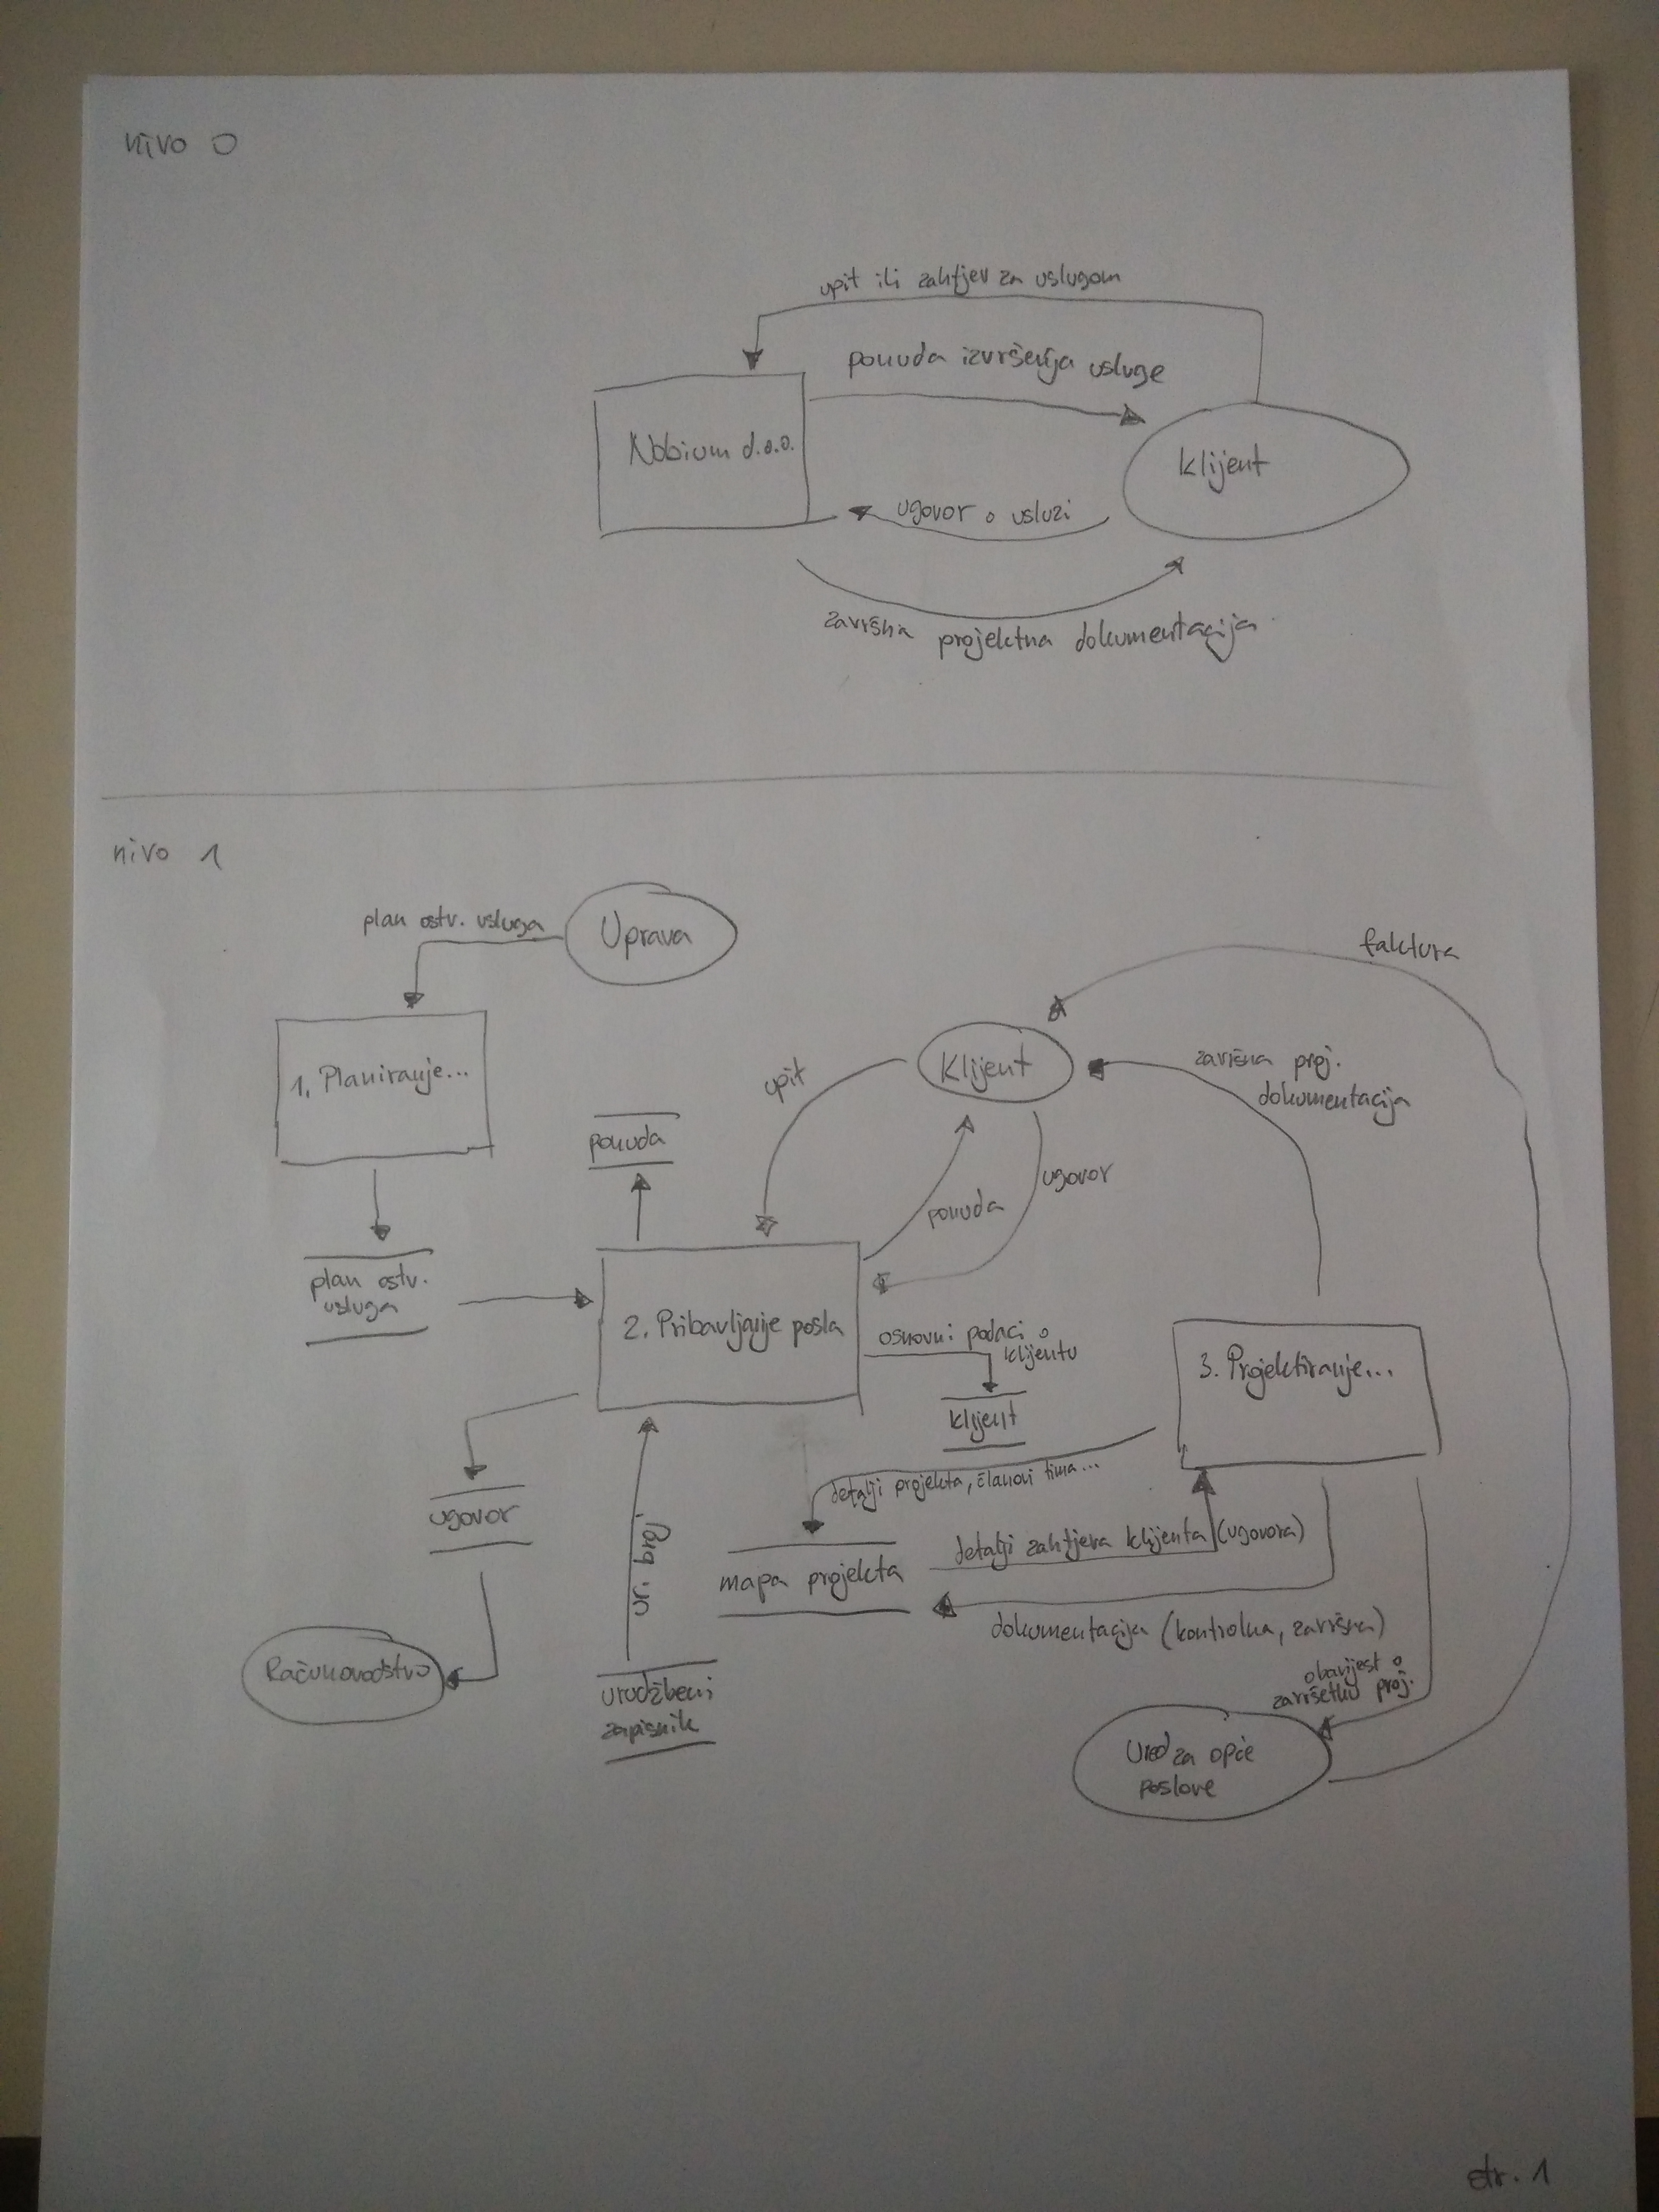 nivo 0
upit ili zahtjev za uslugom
ponuda izvršenja usluge
Nobium d.o.o.
Klijent
ugovor o usluzi
završna projektna dokumentacija
nivo 1
plan ostv. usluga
Uprava
faktura
1. Planiranje...
upit
Klijent
završna proj.
dokumentacija
ponuda
ponuda
ugovor
plan ostv.
usluga
2. Pribavljanje posla
osnovni podaci o
klijentu
3. Projektiranje...
klijent
detalji projekta, članovi tima...
ugovor
ur. broj
detalji zahtjeva klijenta (ugovora)
mapa projekta
dokumentacija (kontrolna, završna)
Računovodstvo
urudžbeni
zapisnik
obavijest o
završetku proj.
Ured za opće
poslove
str. 1